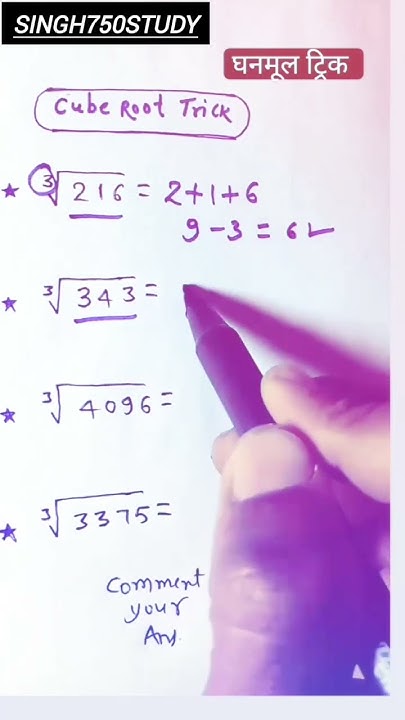 SINGH750STUDY
घनमूल ट्रिक
Cube Root Trick
★ ∛216 = 2+1+6
9 - 3 = 6 ✓
★ ∛343 =
★ ∛4096 =
★ ∛3375 =
Comment
your
Ans.